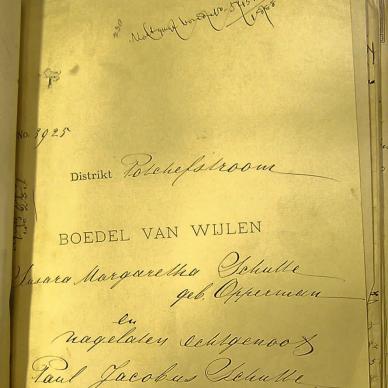 No. 3925
Distrikt Potchefstroom
BOEDEL VAN WIJLEN
Susara Margaretha Schutte
geb. Opperman
en
nagelaten echtgenoot
Paul Jacobus Schutte